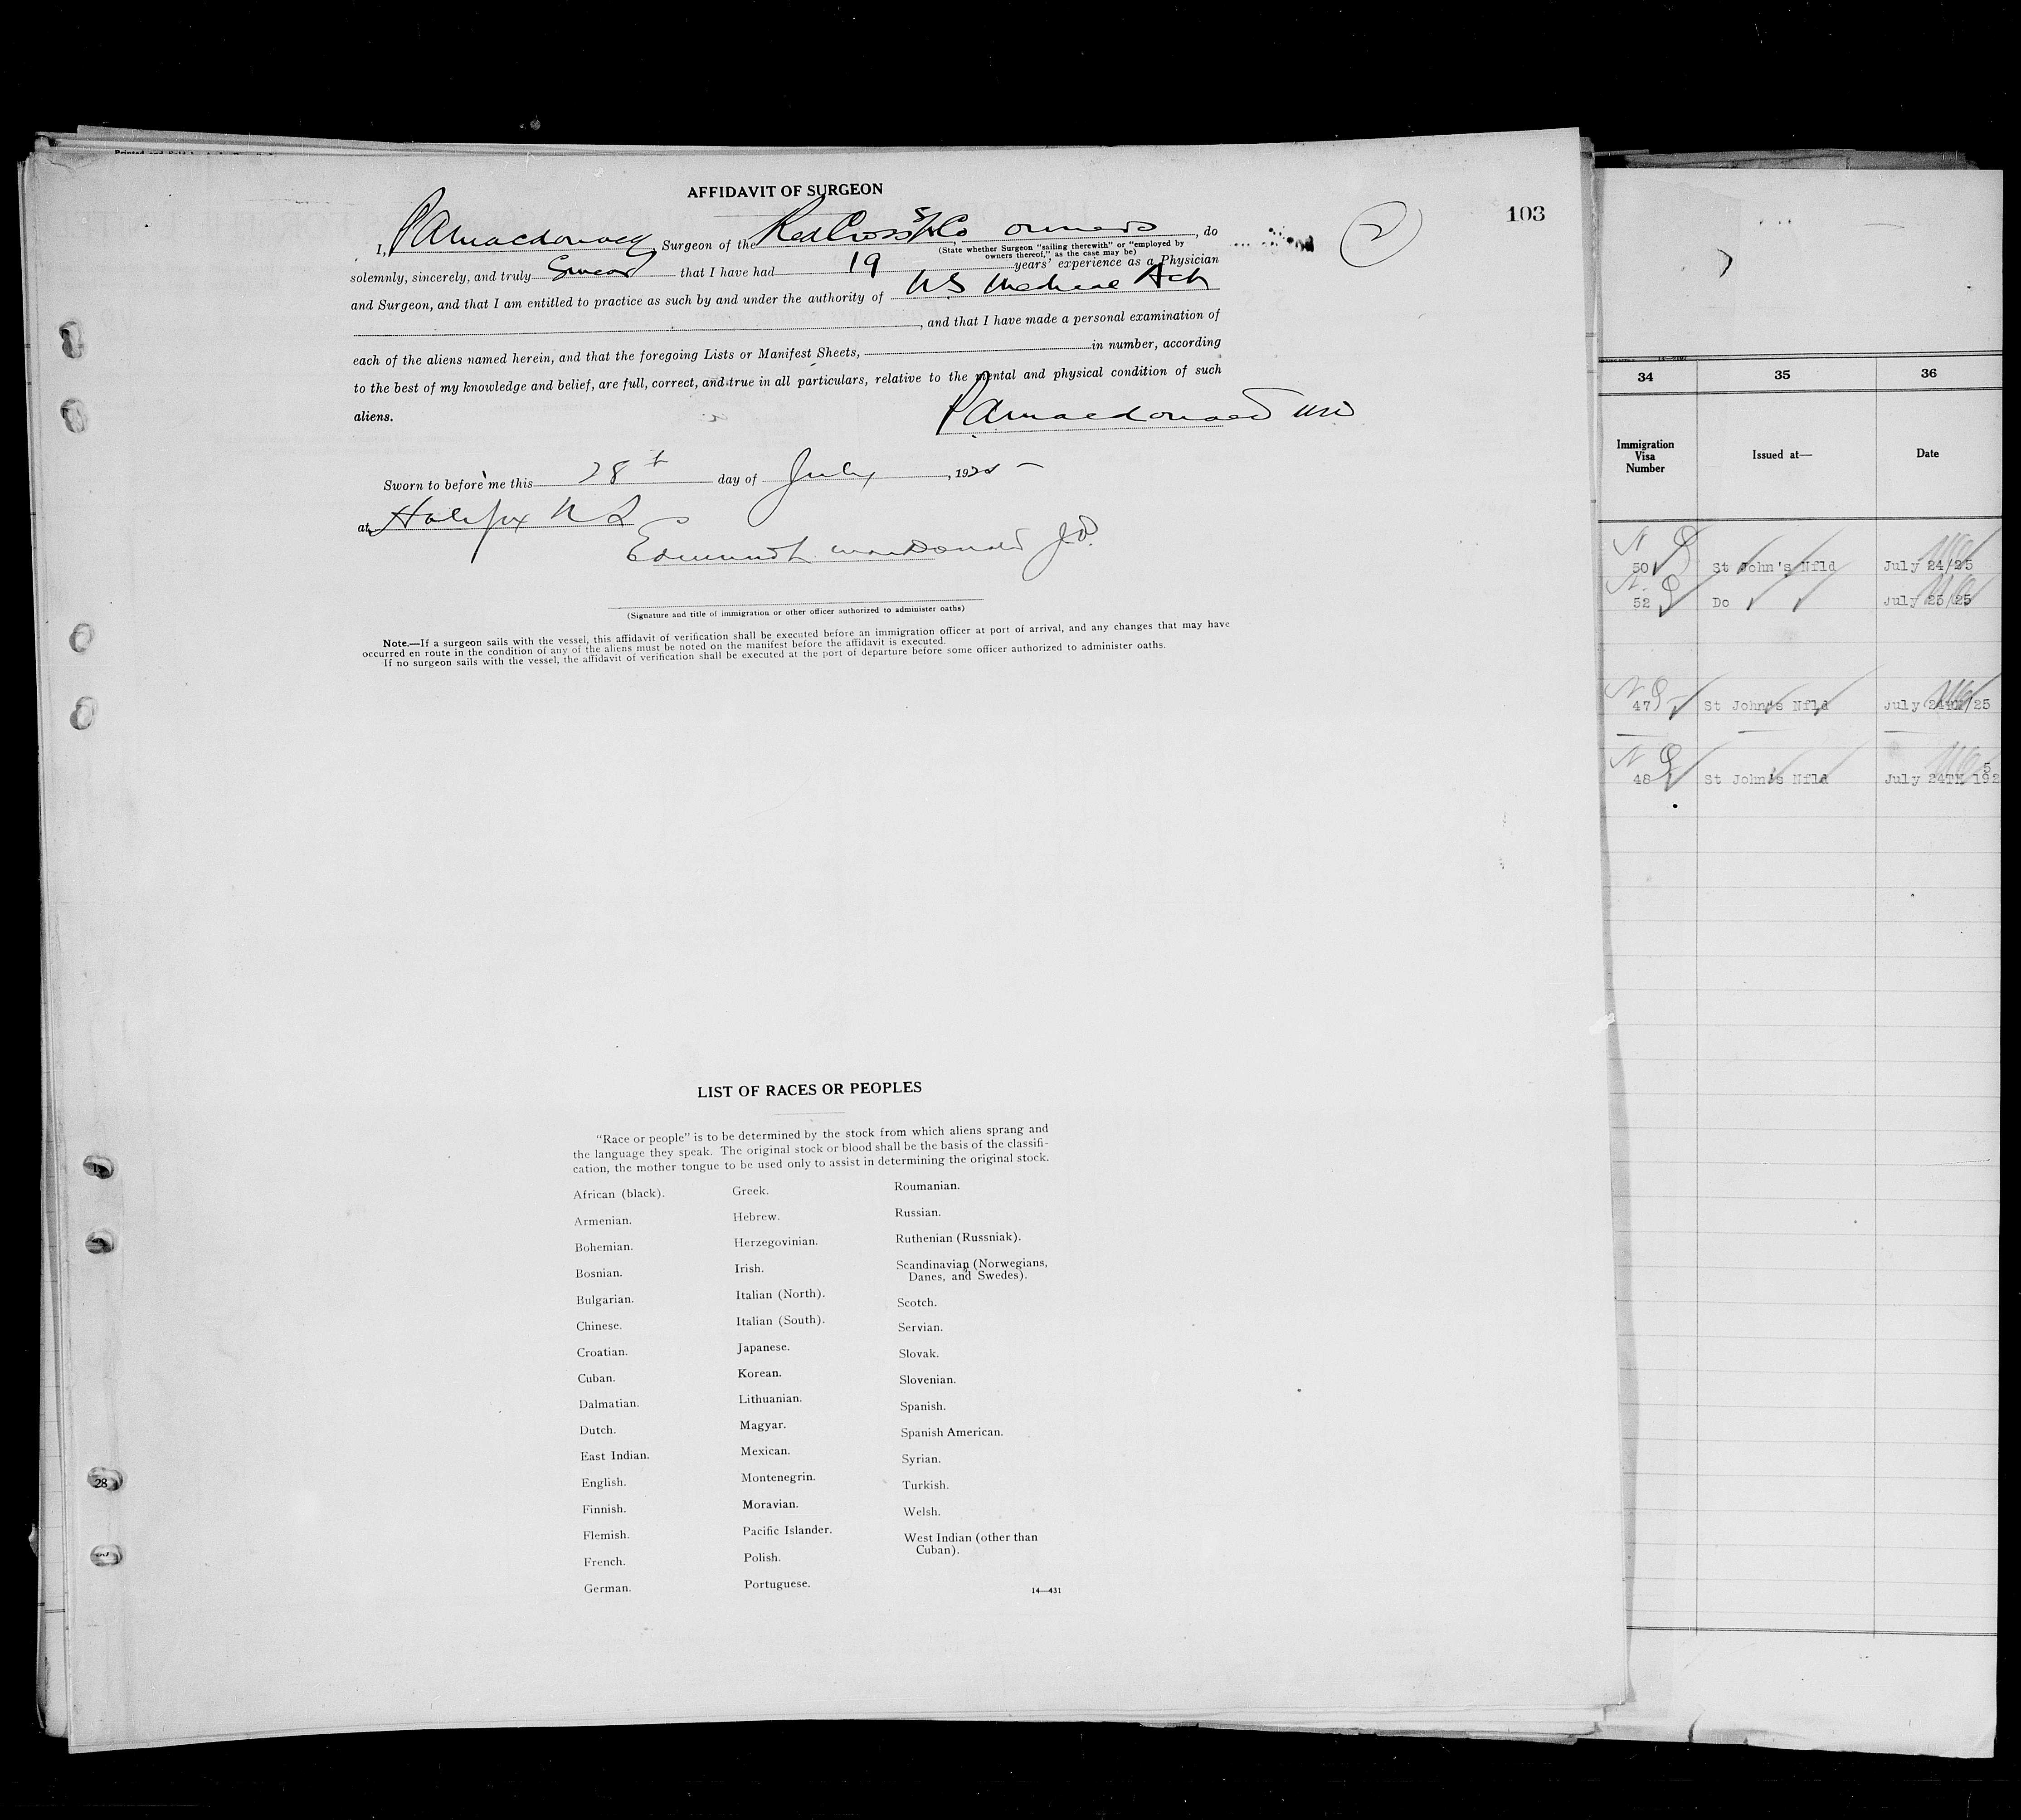 AFFIDAVIT OF SURGEON
103
2
I, P A Macdonald Surgeon of the Red Cross SS Co owners, do
(State whether Surgeon "sailing therewith" or "employed by
owners thereof," as the case may be)
solemnly, sincerely, and truly Swear that I have had 19 years' experience as a Physician
and Surgeon, and that I am entitled to practice as such by and under the authority of NS Medical Act
, and that I have made a personal examination of
each of the aliens named herein, and that the foregoing Lists or Manifest Sheets, in number, according
to the best of my knowledge and belief, are full, correct, and true in all particulars, relative to the mental and physical condition of such
aliens.
P A Macdonald MD
Sworn to before me this 28th day of July, 1925
at Halifax N S
Edmund MacDonald J.P.
(Signature and title of immigration or other officer authorized to administer oaths)
Note.—If a surgeon sails with the vessel, this affidavit of verification shall be executed before an immigration officer at port of arrival, and any changes that may have
occurred en route in the condition of any of the aliens must be noted on the manifest before the affidavit is executed.
If no surgeon sails with the vessel, the affidavit of verification shall be executed at the port of departure before some officer authorized to administer oaths.
LIST OF RACES OR PEOPLES
"Race or people" is to be determined by the stock from which aliens sprang and
the language they speak. The original stock or blood shall be the basis of the classifi-
cation, the mother tongue to be used only to assist in determining the original stock.
African (black).
Armenian.
Bohemian.
Bosnian.
Bulgarian.
Chinese.
Croatian.
Cuban.
Dalmatian.
Dutch.
East Indian.
English.
Finnish.
Flemish.
French.
German.
Greek.
Hebrew.
Herzegovinian.
Irish.
Italian (North).
Italian (South).
Japanese.
Korean.
Lithuanian.
Magyar.
Mexican.
Montenegrin.
Moravian.
Pacific Islander.
Polish.
Portuguese.
Roumanian.
Russian.
Ruthenian (Russniak).
Scandinavian (Norwegians,
Danes, and Swedes).
Scotch.
Servian.
Slovak.
Slovenian.
Spanish.
Spanish American.
Syrian.
Turkish.
Welsh.
West Indian (other than
Cuban).
14—431
28
34 35 36
Immigration
Visa
Number
Issued at—
Date
50 St John's Nfld July 24/25
52 Do July 25/25
47 St John's Nfld July 24TH/25
48 St John's Nfld July 24TH 1925